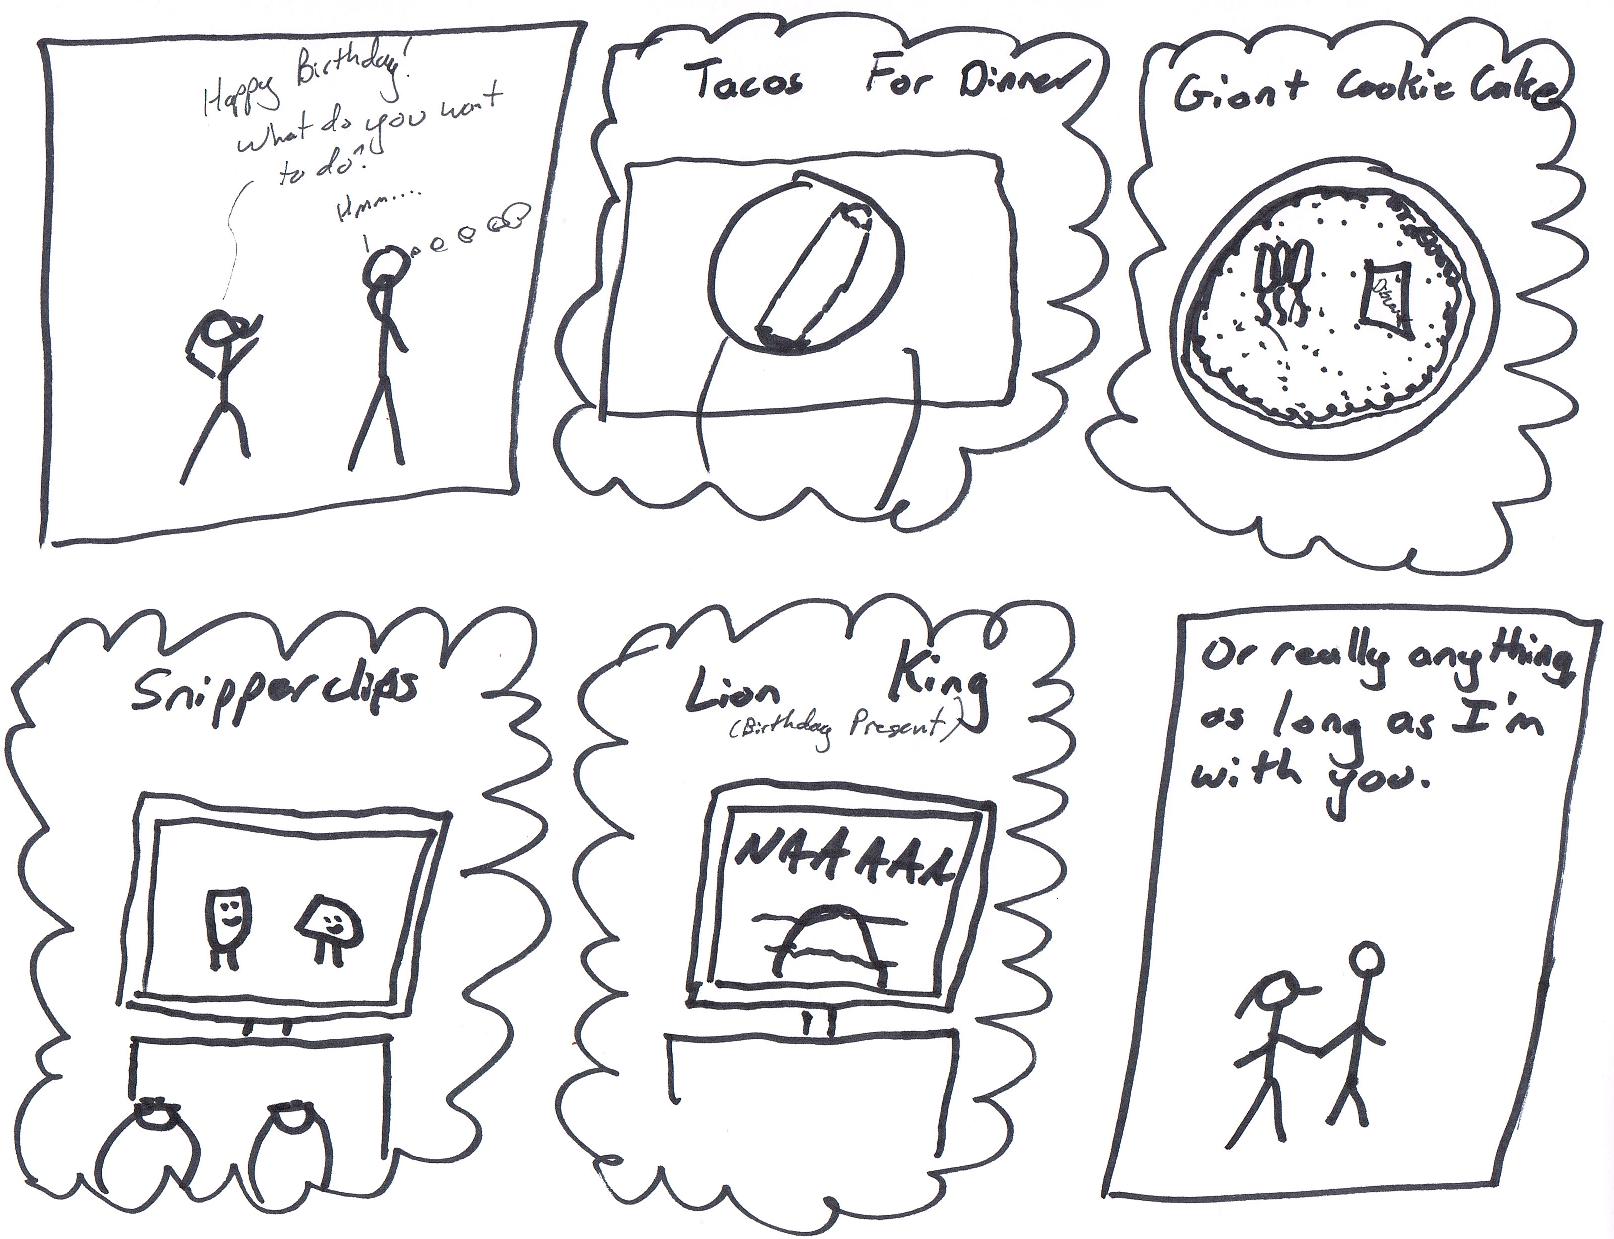 Happy Birthday!
What do you want
to do?
Hmm....
Tacos For Dinner
Giant Cookie Cake
Snipperclips
Lion King
(Birthday Present)
NAAAAAA
Or really anything,
as long as I'm
with you.